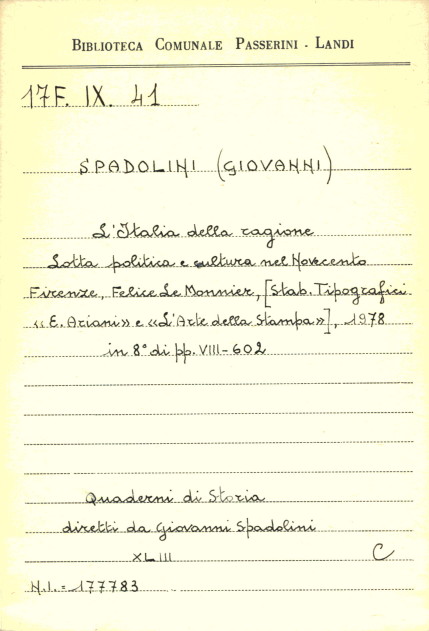 BIBLIOTECA COMUNALE PASSERINI - LANDI
17F. IX. 41
SPADOLINI (GIOVANNI)
L'Italia della ragione
Lotta politica e cultura nel Novecento
Firenze, Felice Le Monnier, [Stab. Tipografici
«E. Ariani» e «L'Arte della Stampa»], 1978
in 8° di pp. VIII-602
Quaderni di Storia
diretti da Giovanni Spadolini
XLIII C
N.I. = 177783